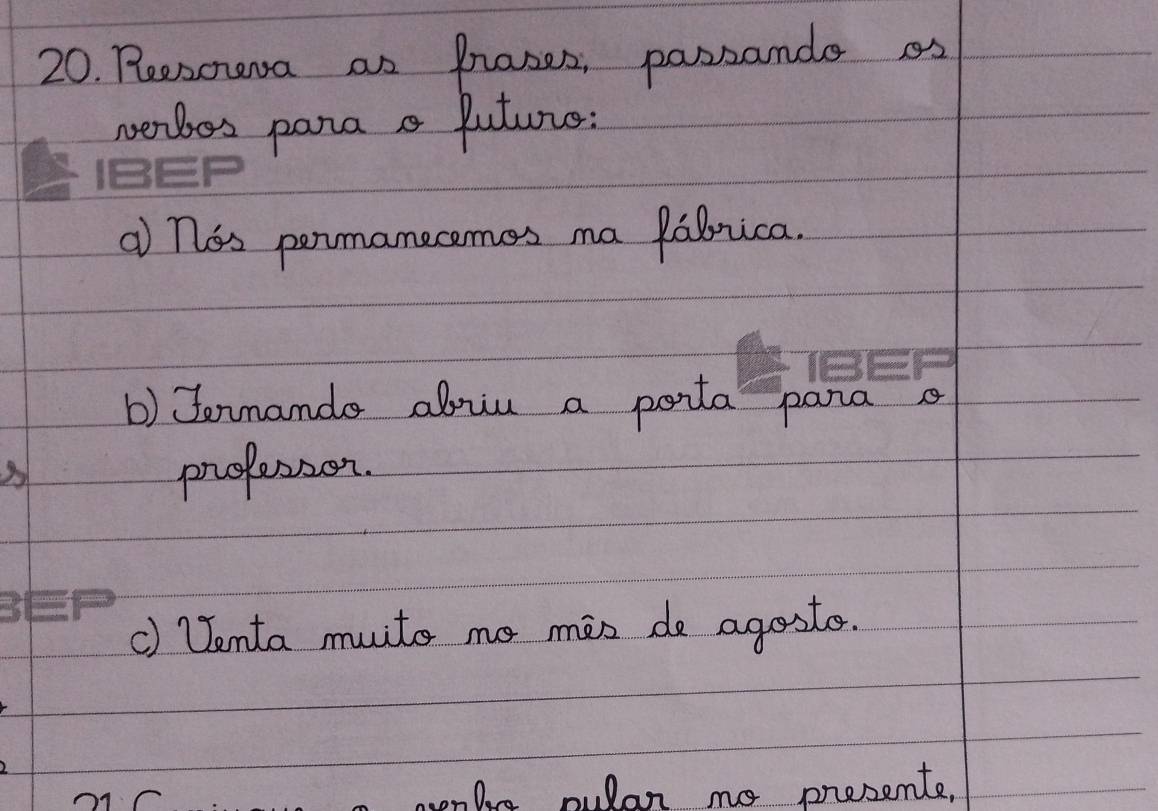 20. Reescreva as frases, passando os
verbos para o futuro:
IBEP
a) Nós permanecemos na fábrica.
IBEP
b) Fernando abriu a porta para o
professor.
s
BEP
c) Venta muito no mês de agosto.
verbo pular no presente,